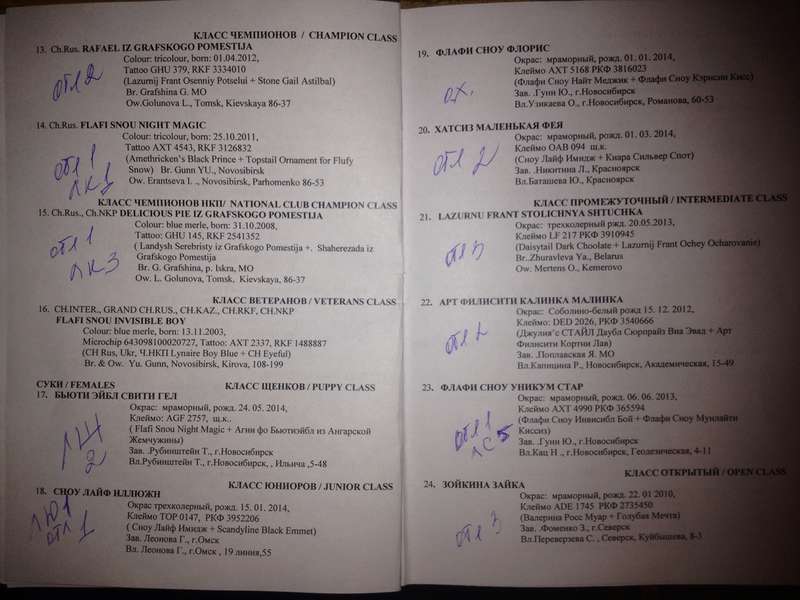 КЛАСС ЧЕМПИОНОВ / CHAMPION CLASS
13. Ch.Rus. RAFAEL IZ GRAFSKOGO POMESTIJA
Colour: tricolour, born: 01.04.2012,
Tattoo GHU 379, RKF 3334010
(Lazurnij Frant Osenniy Potselui + Stone Gail Astilbal)
Br. Grafshina G. MO
Ow.Golunova L., Tomsk, Kievskaya 86-37
отл 2
14. Ch.Rus. FLAFI SNOU NIGHT MAGIC
Colour: tricolour, born: 25.10.2011,
Tattoo AXT 4543, RKF 3126832
(Amethricken's Black Prince + Topstail Ornament for Flufy
Snow) Br. Gunn YU., Novosibirsk
Ow. Erantseva I. ., Novosibirsk, Parhomenko 86-53
отл 1
ЛК1
КЛАСС ЧЕМПИОНОВ НКП/ NATIONAL CLUB CHAMPION CLASS
15. Ch.Rus., Ch.NKP DELICIOUS PIE IZ GRAFSKOGO POMESTIJA
Colour: blue merle, born: 31.10.2008,
Tattoo: GHU 145, RKF 2541352
( Landysh Serebristy iz Grafskogo Pomestija +. Shaherezada iz
Grafskogo Pomestija
Br. G. Grafshina, p. Iskra, MO
Ow. L. Golunova, Tomsk, Kievskaya, 86-37
отл 1
ЛК3
КЛАСС ВЕТЕРАНОВ / VETERANS CLASS
16. CH.INTER., GRAND CH.RUS., CH.KAZ., CH.RKF, CH.NKP
FLAFI SNOU INVISIBLE BOY
Colour: blue merle, born: 13.11.2003,
Microchip 643098100020727, Tattoo: AXT 2337, RKF 1488887
(CH Rus, Ukr, Ч.НКП Lynaire Boy Blue + CH Eyeful)
Br. & Ow. Yu. Gunn, Novosibirsk, Kirova, 108-199
СУКИ / FEMALES КЛАСС ЩЕНКОВ / PUPPY CLASS
17. БЬЮТИ ЭЙБЛ СВИТИ ГЕЛ
Окрас: мраморный, рожд. 24. 05. 2014,
Клеймо: AGF 2757, щ.к..
( Flafi Snou Night Magic + Агни фо Бьютиэйбл из Ангарской
Жемчужины)
Зав. .Рубинштейн Т., г.Новосибирск
Вл.Рубинштейн Т., г.Новосибирск, , Ильича ,5-48
ЛЩ
2
КЛАСС ЮНИОРОВ / JUNIOR CLASS
18. СНОУ ЛАЙФ ИЛЛЮЖН
Окрас трехколерный, рожд. 15. 01. 2014,
Клеймо TOP 0147, РКФ 3952206
( Сноу Лайф Имидж + Scandyline Black Emmet)
Зав. Леонова Г., г.Омск
Вл. Леонова Г., г.Омск , 19 линия,55
ЛЮ1
отл 1
19. ФЛАФИ СНОУ ФЛОРИС
Окрас: мраморный, рожд. 01. 01. 2014,
Клеймо AXT 5168 РКФ 3816023
(Флафи Сноу Найт Меджик + Флафи Сноу Кэрисин Кисс)
Зав. .Гунн Ю., г.Новосибирск
Вл.Узикаева О., г.Новосибирск, Романова, 60-53
ох.
20. ХАТСИЗ МАЛЕНЬКАЯ ФЕЯ
Окрас: мраморный, рожд. 01. 03. 2014,
Клеймо ОАВ 094 щ.к.
(Сноу Лайф Имидж + Киара Сильвер Спот)
Зав. .Никитина Л., Красноярск
Вл.Баташева Ю., Красноярск
отл 2
КЛАСС ПРОМЕЖУТОЧНЫЙ / INTERMEDIATE CLASS
21. LAZURNU FRANT STOLICHNYA SHTUCHKA
Окрас: трехколерный рожд. 20.05.2013,
Клеймо LF 217 РКФ 3910945
(Daisytail Dark Choolate + Lazurnij Frant Ochey Ocharovanie)
Br..Zhuravleva Ya., Belarus
Ow. Mertens O., Kemerovo
отл 3
22. АРТ ФИЛИСИТИ КАЛИНКА МАЛИНКА
Окрас: Соболино-белый рожд 15. 12. 2012,
Клеймо: DED 2026, РКФ 3540666
(Джулия'с СТАЙЛ Даубл Сюрпрайз Виа Эвад + Арт
Филисити Кортни Лав)
Зав. .Поплавская Я. МО
Вл.Капицина Р., Новосибирск, Академическая, 15-49
отл 2
23. ФЛАФИ СНОУ УНИКУМ СТАР
Окрас: мраморный, рожд. 06. 06. 2013,
Клеймо AXT 4990 РКФ 365594
(Флафи Сноу Инвисибл Бой + Флафи Сноу Мунлайти
Киссиз)
Зав. .Гунн Ю., г.Новосибирск
Вл.Кац Н ., г.Новосибирск, Геодезическая, 4-11
отл 1
ЛС 5
КЛАСС ОТКРЫТЫЙ / OPEN CLASS
24. ЗОЙКИНА ЗАЙКА
Окрас: мраморный, рожд. 22. 01 2010,
Клеймо ADE 1745 РКФ 2735450
(Валерина Росс Муар + Голубая Мечта)
Зав. .Фоменко З., г.Северск
Вл.Переверзева С. , Северск, Куйбышева, 8-3
отл 3